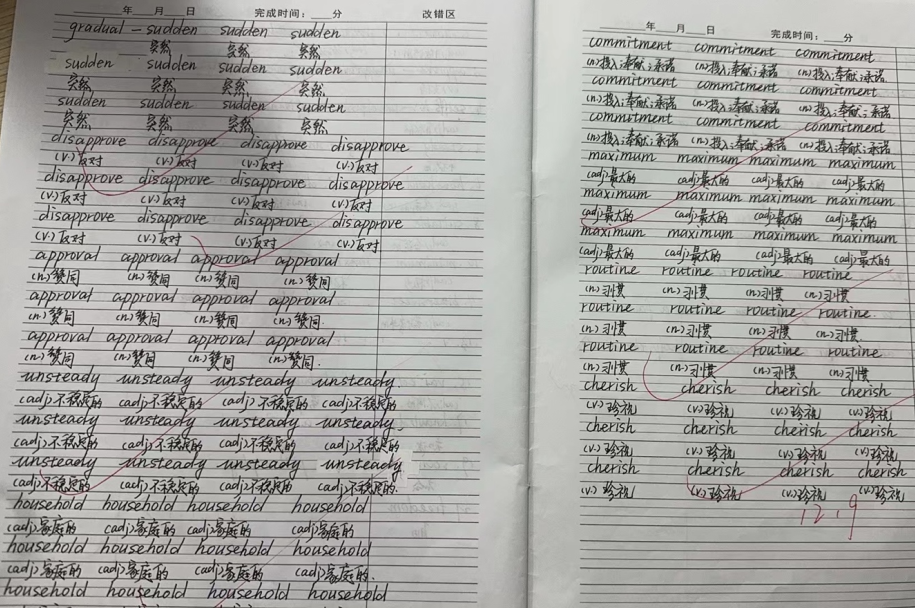 年 月 日 完成时间： 分 改错区
gradual - sudden sudden sudden
突然 突然 突然
sudden sudden sudden sudden
突然 突然 突然 突然
sudden sudden sudden sudden
突然 突然 突然 突然
disapprove disapprove disapprove disapprove
(v.)反对 (v.)反对 (v.)反对 (v.)反对
disapprove disapprove disapprove disapprove
(v.)反对 (v.)反对 (v.)反对 (v.)反对
disapprove disapprove disapprove disapprove
(v.)反对 (v.)反对 (v.)反对 (v.)反对
approval approval approval approval
(n.)赞同 (n.)赞同 (n.)赞同 (n.)赞同
approval approval approval approval
(n.)赞同 (n.)赞同 (n.)赞同 (n.)赞同.
approval approval approval approval
(n.)赞同 (n.)赞同 (n.)赞同 (n.)赞同.
unsteady unsteady unsteady unsteady.
(adj)不稳定的 (adj)不稳定的 (adj)不稳定的 (adj)不稳定的
unsteady unsteady unsteady unsteady.
(adj)不稳定的 (adj)不稳定的 (adj)不稳定的 (adj)不稳定的
unsteady unsteady unsteady unsteady
(adj)不稳定的 (adj)不稳定的 (adj)不稳定的 (adj)不稳定的.
household household household household
(adj)家庭的 (adj)家庭的 (adj)家庭的 (adj)家庭的
household household household household
(adj)家庭的 (adj)家庭的 (adj)家庭的 (adj)家庭的.
household household household household
年 月 日 完成时间： 分
commitment commitment commitment
(n.)投入;奉献;承诺 (n.)投入;奉献;承诺 (n.)投入;奉献;承诺
commitment commitment commitment
(n.)投入;奉献;承诺 (n.)投入;奉献;承诺 (n.)投入;奉献;承诺
commitment commitment commitment
(n.)投入;奉献;承诺 (n.)投入;奉献;承诺 (n.)投入;奉献;承诺
maximum maximum maximum maximum
(adj)最大的 (adj)最大的 (adj)最大的 (adj)最大的
maximum maximum maximum maximum
(adj)最大的 (adj)最大的 (adj)最大的 (adj)最大的
maximum maximum maximum maximum
(adj)最大的 (adj)最大的 (adj)最大的 (adj)最大的
routine routine routine routine
(n.)习惯 (n.)习惯 (n.)习惯 (n.)习惯
routine routine routine routine.
(n.)习惯 (n.)习惯 (n.)习惯 (n.)习惯
routine routine routine routine
(n.)习惯 (n.)习惯 (n.)习惯 (n.)习惯
cherish cherish cherish cherish
(v.)珍视 (v.)珍视 (v.)珍视 (v.)珍视
cherish cherish cherish cherish
(v.)珍视 (v.)珍视 (v.)珍视 (v.)珍视
cherish cherish cherish cherish
(v.)珍视 (v.)珍视 (v.)珍视 (v.)珍视
12.9